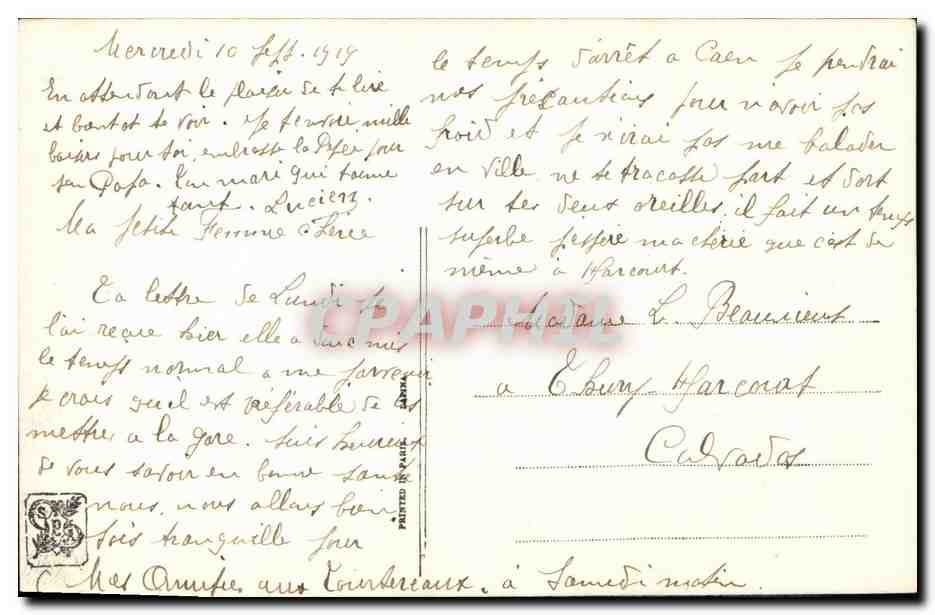 Mercredi 10 Sept. 1919
En attendant le plaisir de te lire
et bientot te voir. Je t'envoie mille
baisers pour toi, embrasse la pour
son Papa. Ton mari qui t'aime
tant. Lucien.
Ma petite Femme Cherie
Ta lettre de Lundi je
l'ai reçue hier elle a donc mis
le temps normal a me parvenir
Je crois qu'il est préférable de les
mettre a la gare. Suis heureux
de vous savoir en bonne santé
nous, nous allons bien
sois tranquille pour
le temps d'arrêt a Caen je prendrai
nos précautions pour n'avoir pas
froid et je n'irai pas me balader
en ville ne te tracasse pas et dort
sur tes deux oreilles, il fait un temps
superbe j'espère ma cherie que c'est de
même à Harcourt.
Madame L. Beaunieux
a Thury-Harcourt
Calvados
Mes aux Tourtereaux. à Samedi matin.
PRINTED IN PARIS
CPAPHIL